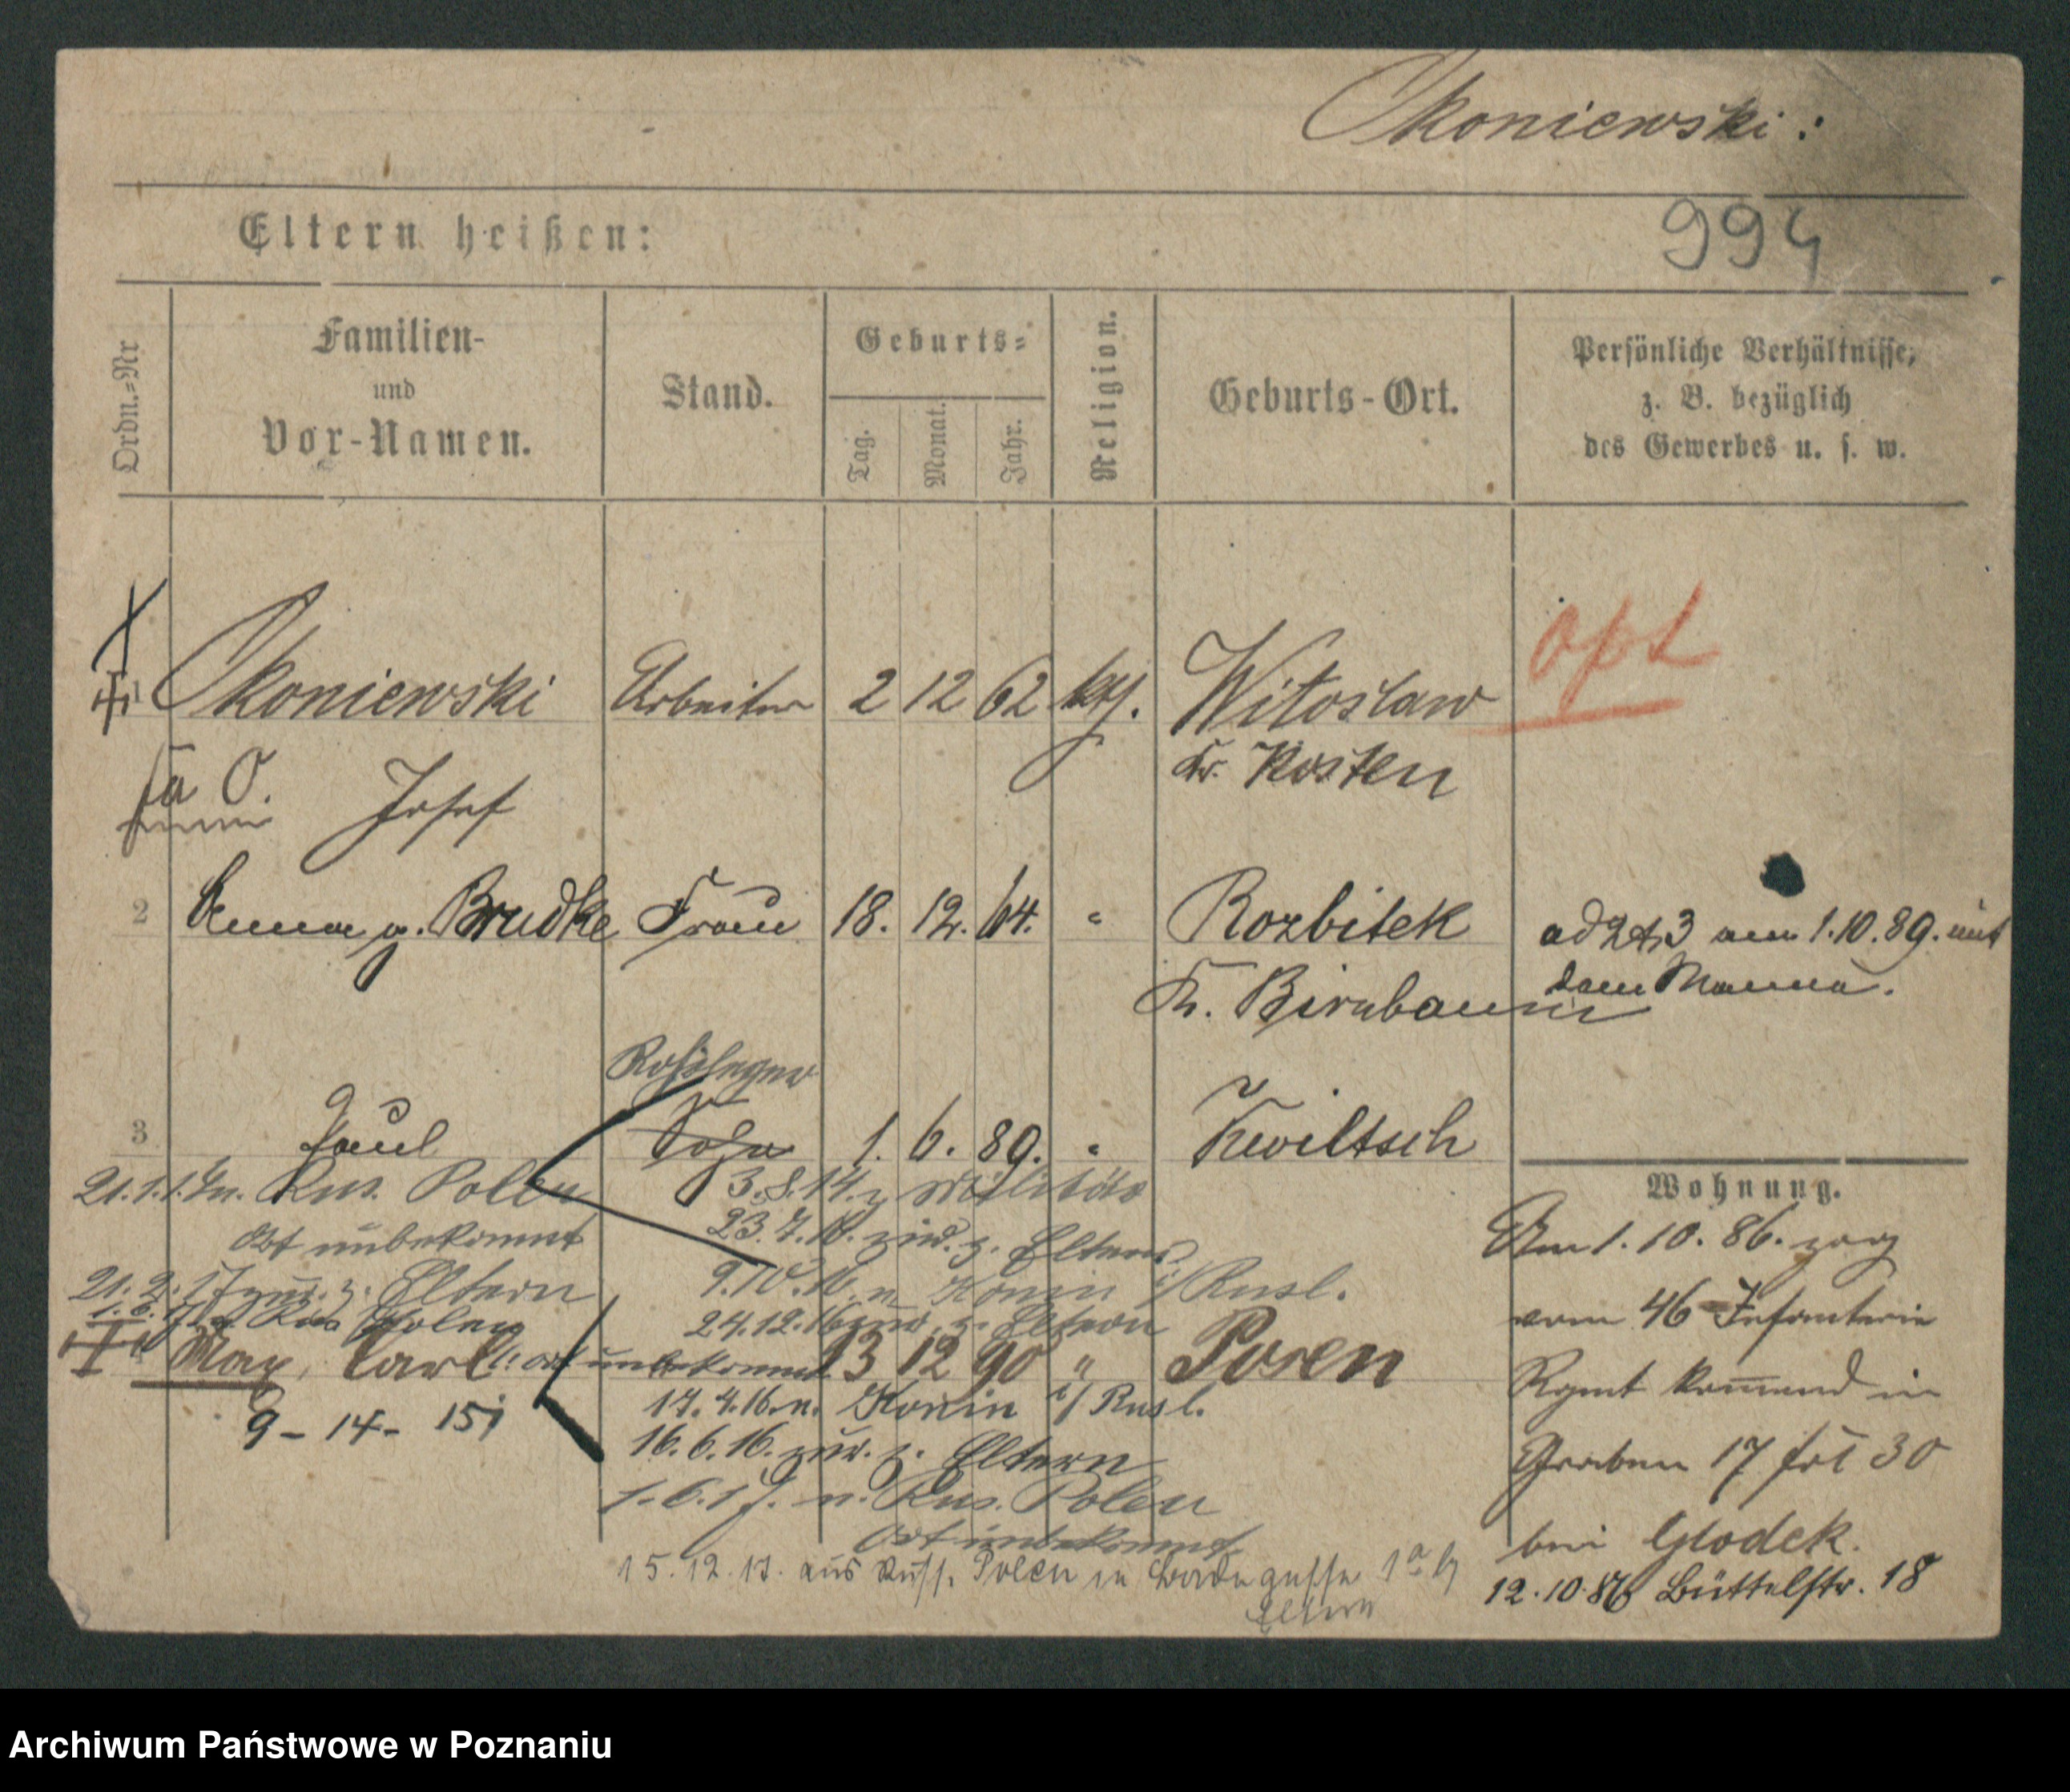 Okoniewski:
Eltern heißen:
994
Ordn.=Nr
Familien-
und
Vor-Namen.
Stand.
Geburts=
Tag.
Monat.
Jahr.
Religion.
Geburts-Ort.
Persönliche Verhältnisse,
z. B. bezüglich
des Gewerbes u. s. w.
opt
Okoniewski Arbeiter 2 12 62 kth. Witoslaw
Kr. Kosten
Josef
2 Anna g. Brudke Frau 18. 12. 64. " Rozbitek
Kr. Birnbaum
ad 2 & 3 am 1.10.89. mit
dem Manne.
3 Paul Sohn 1. 6. 89. " Kwiltsch
21.1.17. n. Rus. Polen
Ort unbekannt
21.2.17 zur. z. Eltern
3.8.14. z Militär
23.7.16. zur. z. Eltern
9.10.16. n. Konin i/Rusl.
24.12.16 zur. z. Eltern
1.6.17 n. Rus Polen
Ort unbekannt
Max, Carl 13 12 90 " Posen
9 - 14 - 15
17.4.16. n. Konin i/Rusl.
16.6.16. zur. z. Eltern
1.6.17. n. Rus. Polen
Ort unbekannt
15.12.17. aus Russ. Polen in
Eltern
Wohnung.
Am 1.10.86. zog
vom 46 Infanterie
Rgmt kommend in
Graben 17 fol 30
bei Glodek.
12.10.86 Büttelstr. 18
Archiwum Państwowe w Poznaniu